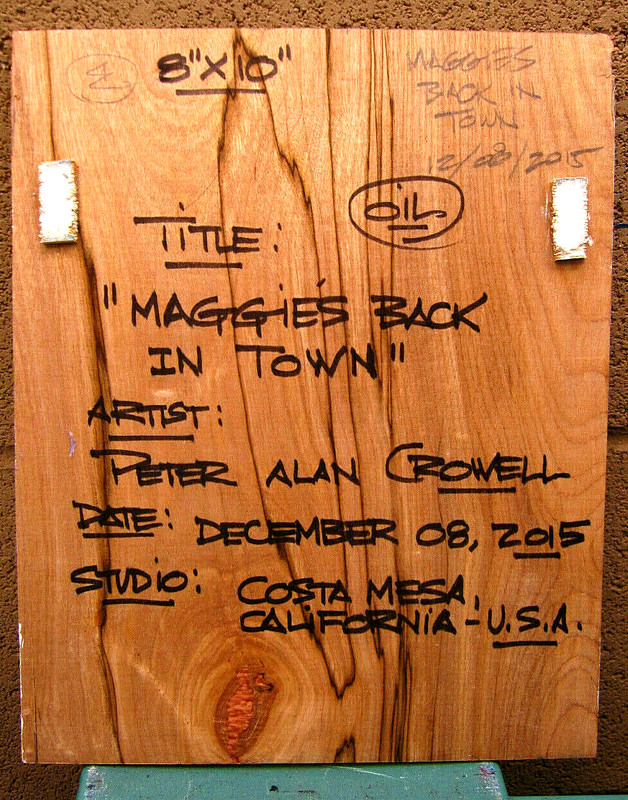 8"X10"
MAGGIE'S
BACK IN
TOWN
12/08/2015
OIL
TITLE:
"MAGGIE'S BACK
IN TOWN"
ARTIST:
PETER ALAN CROWELL
DATE: DECEMBER 08, 2015
STUDIO: COSTA MESA,
CALIFORNIA - U.S.A.